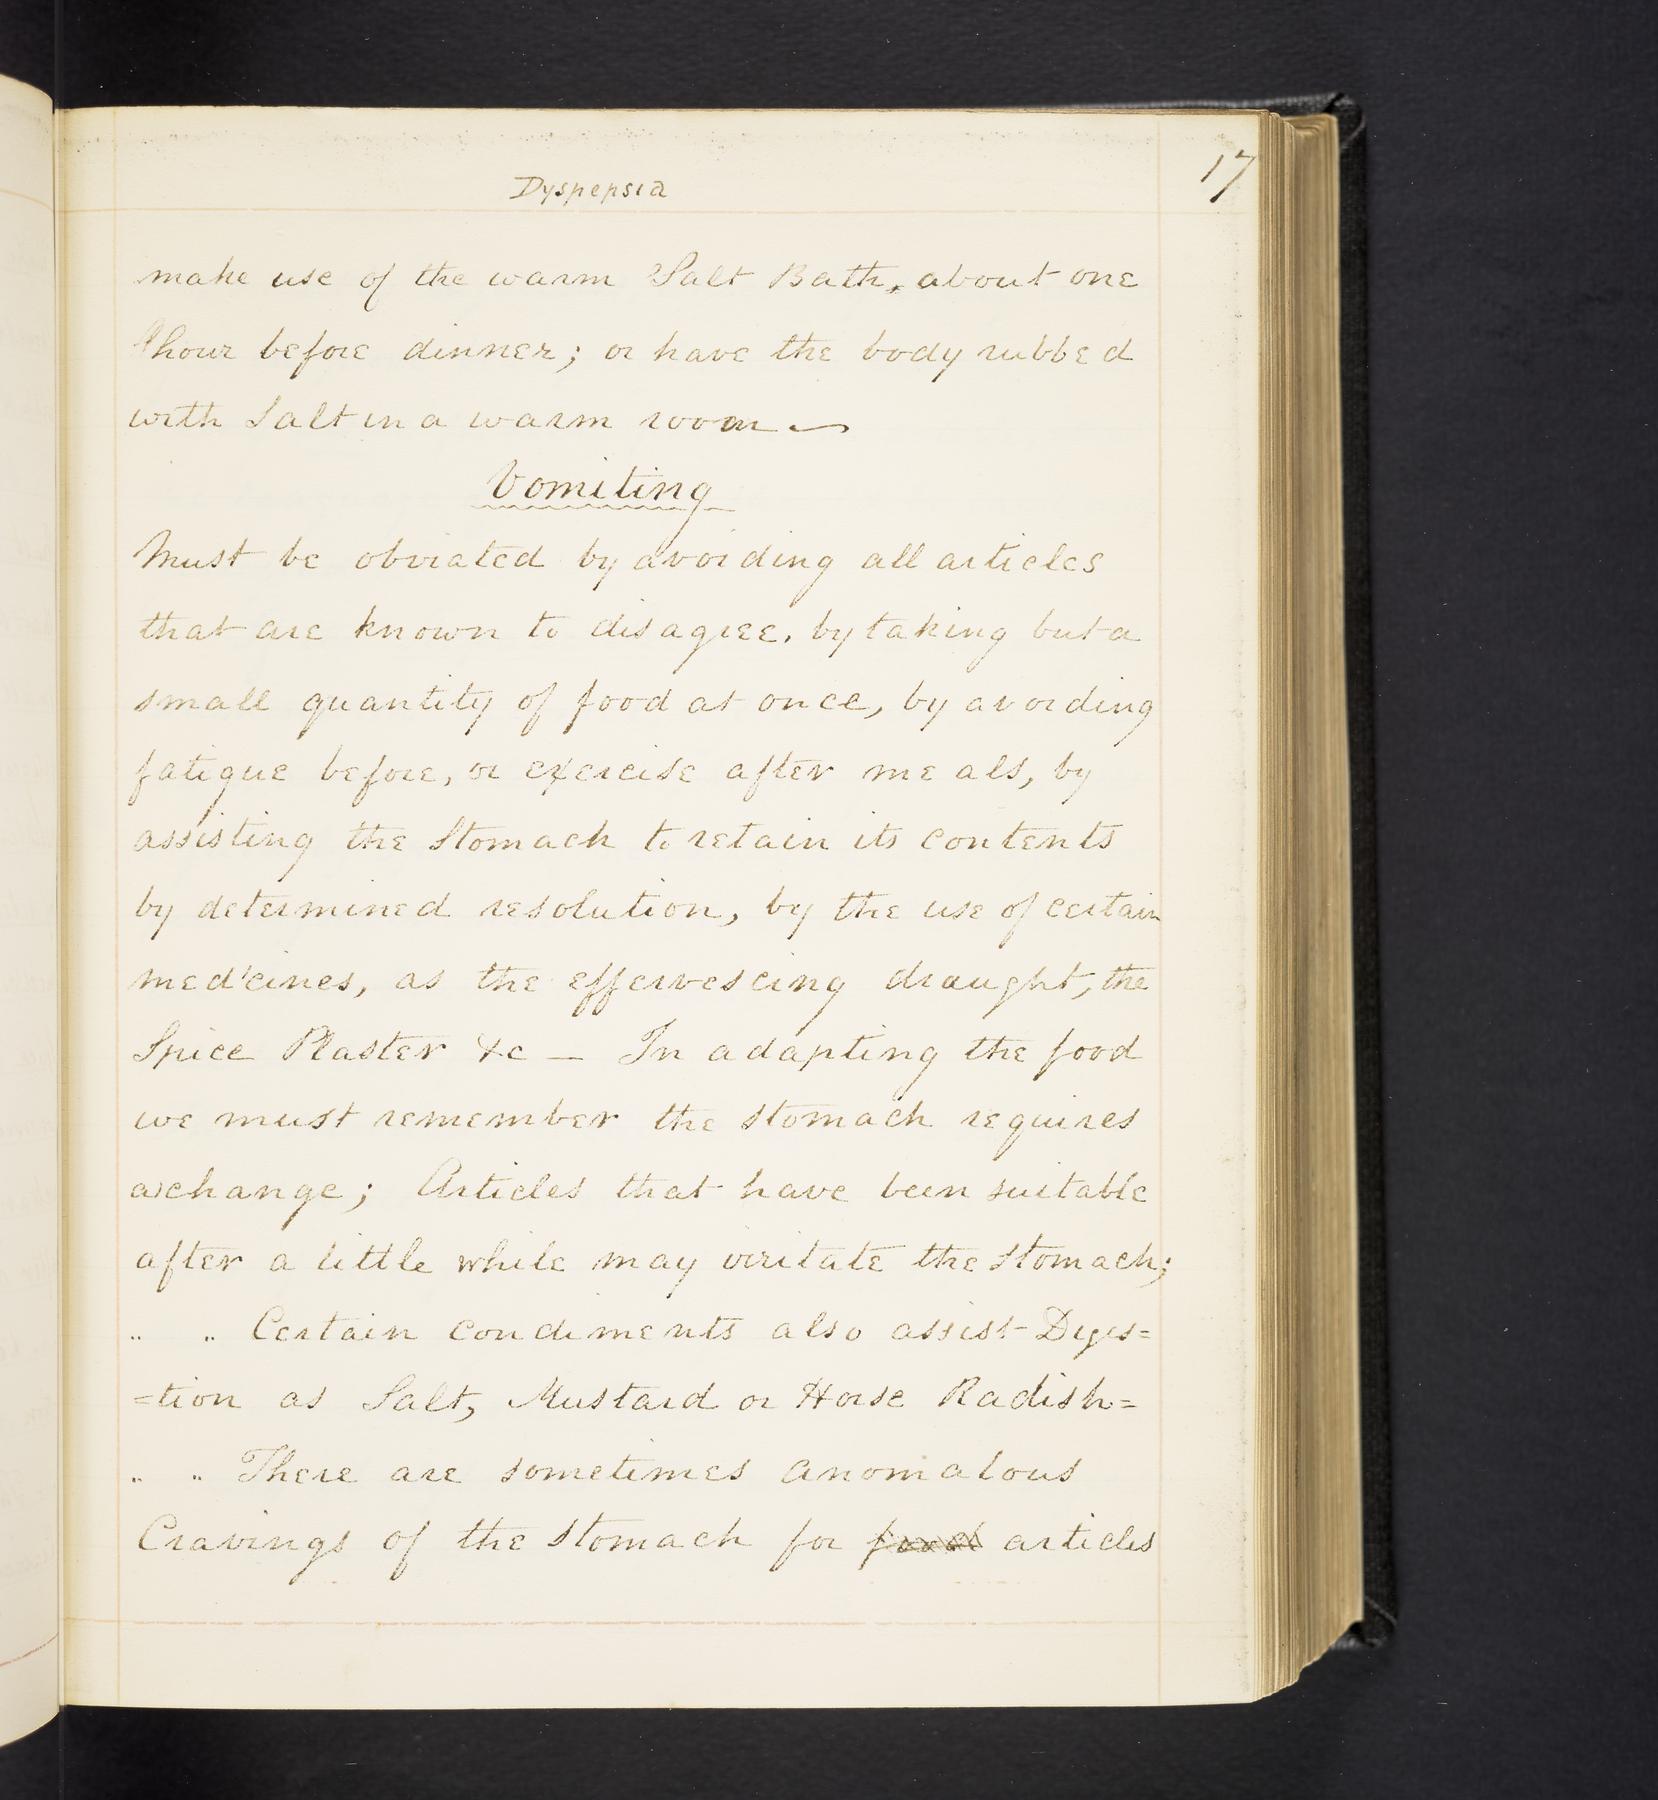 17
Dyspepsia
make use of the warm Salt Bath, about one
hour before dinner; or have the body rubbed
with Salt in a warm room —
Vomiting
Must be obviated by avoiding all articles
that are known to disagree, by taking but a
small quantity of food at once, by avoiding
fatigue before, or exercise after meals, by
assisting the Stomach to retain its contents
by determined resolution, by the use of certain
med'cines, as the effervescing draught, the
Spice Plaster &c — In adapting the food
we must remember the stomach requires
a change; Articles that have been suitable
after a little while may irritate the stomach;
" " Certain condiments also assist Diges=
=tion as Salt, Mustard or Horse Radish=
" " There are sometimes anomalous
Cravings of the stomach for food articles